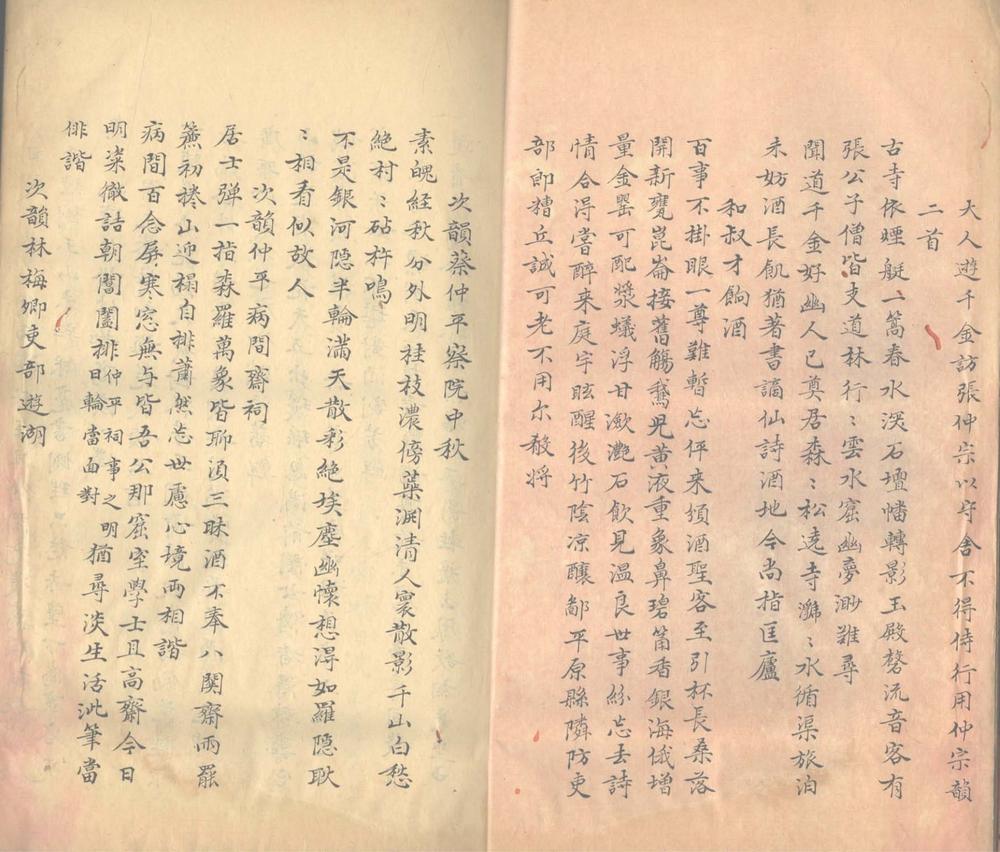 大人遊千金訪張仲宗以守舍不得侍行用仲宗韻
二首
古寺依煙艇一篙春水深石壇幡轉影玉殿磬流音客有
張公子僧皆支道林行〻雲水窟幽夢渺難尋
聞道千金好幽人已奠居森〻松遶寺㶁〻水循渠旅泊
未妨酒長飢猶著書謫仙詩酒地今尚指匡廬
和叔才餉酒
百事不掛眼一尊難暫忘伻来頒酒聖客至引杯長桑落
開新甕崑崙接舊觴鵝兒黄液重象鼻碧筩香銀海俄增
量金罌可配漿蟻浮甘瀲灧石飲見温良世事紛忘去詩
情合得嘗醉来庭宇眩醒後竹陰凉釀鄙平原縣隣防吏
部郎糟丘誠可老不用尔敖将
次韻蔡仲平察院中秋
素魄経秋分外明桂枝濃傍蘂淵清人寰散影千山白愁
絶村〻砧杵鳴
不是銀河隠半輪滿天散彩絶埃塵幽懷想淂如羅隠耿
〻相看似故人
次韻仲平病間齋祠
居士弹一指森羅萬象皆聊湏三昧酒不奉八関齋雨罷
簾初捲山迎榻自排蕭然忘世慮心境両相諧
病間百念屏寒窓無与皆吾公那窟室學士且高齋今日
明粢徹詰朝閶闔排仲平祠事之明日輪當面對猶尋淡生活泚筆當
俳諧
次韻林梅卿吏部遊湖